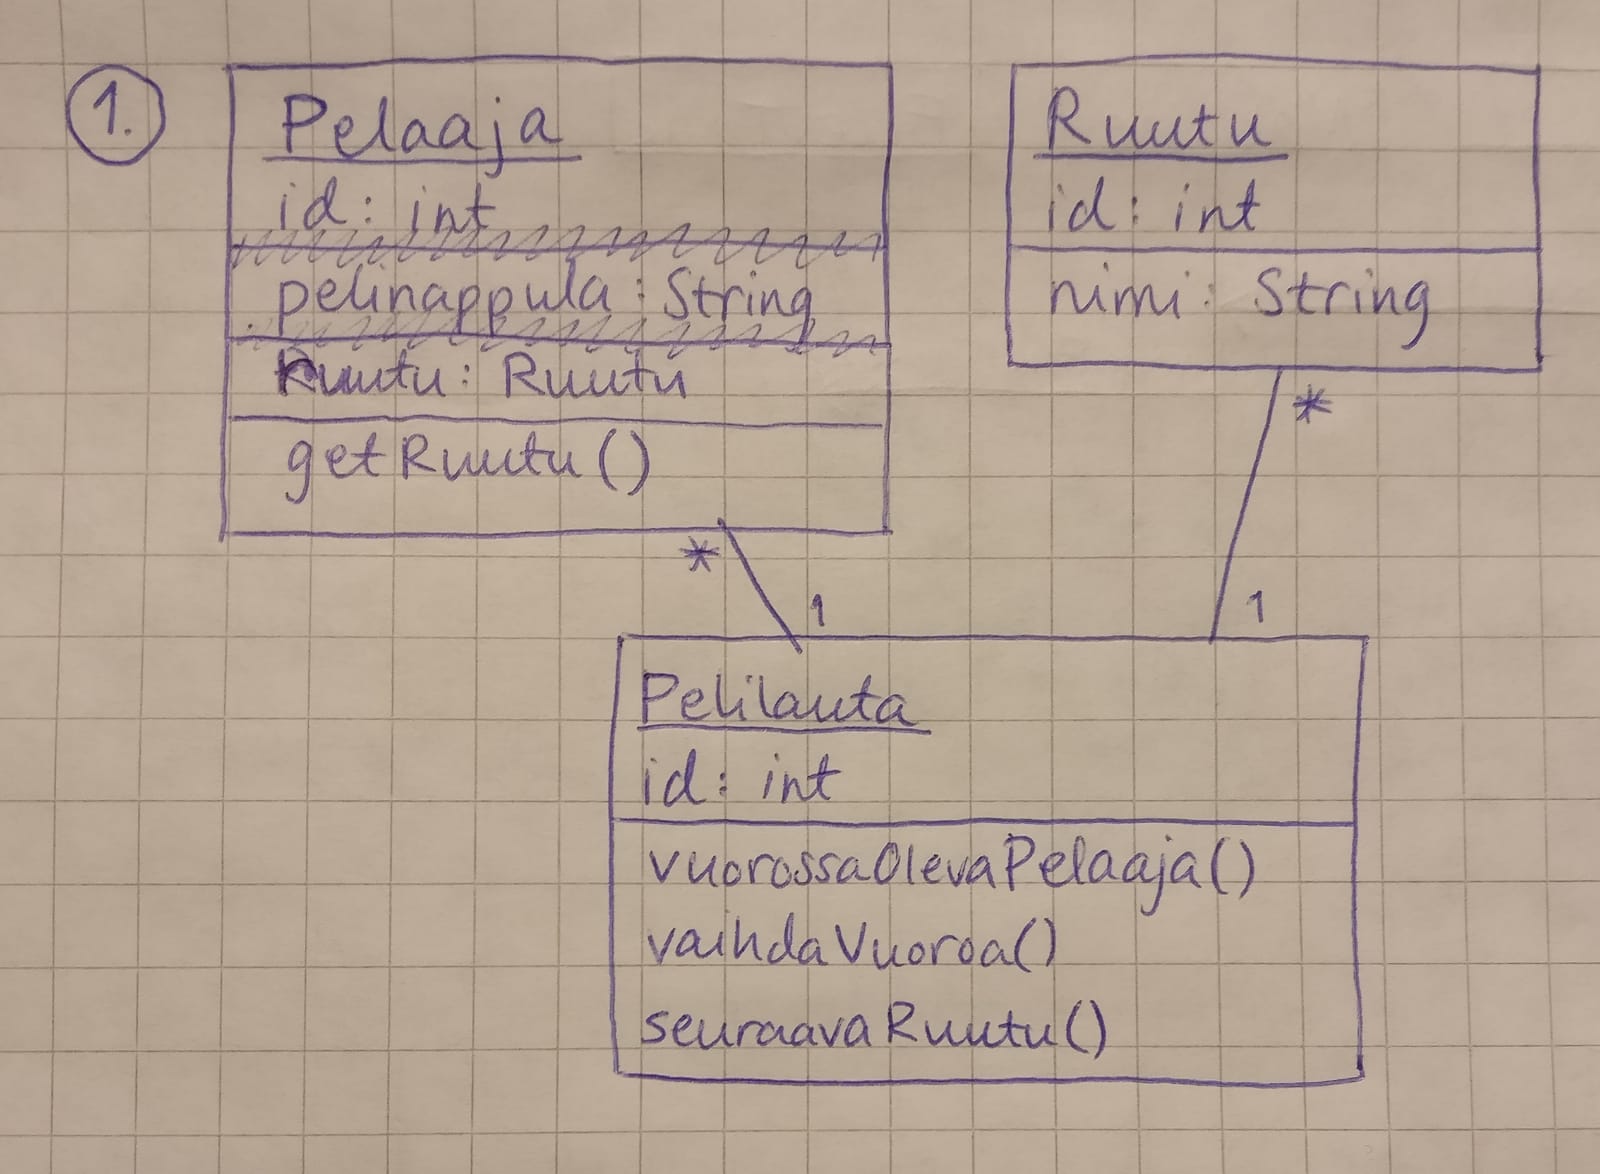 1.
Pelaaja
id: int
pelinappula: String
ruutu: Ruutu
getRuutu()
*
1
Ruutu
id: int
nimi: String
*
1
Pelilauta
id: int
vuorossaOlevaPelaaja()
vaihdaVuoroa()
seuraavaRuutu()